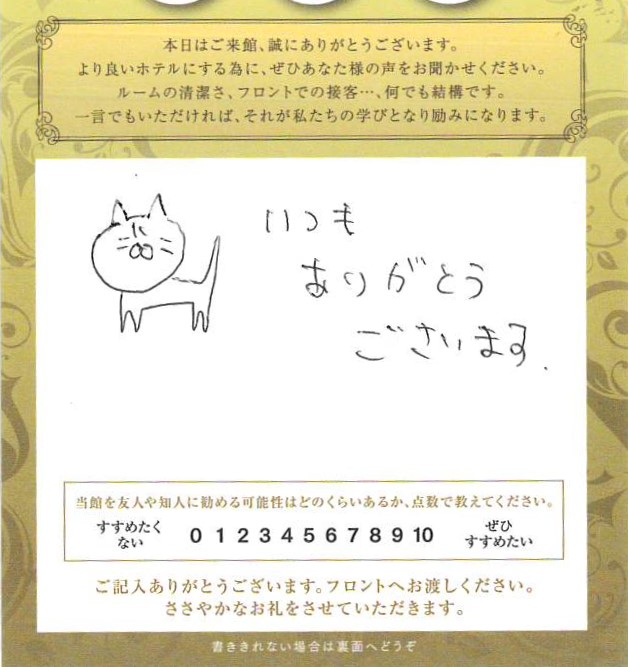 本日はご来館、誠にありがとうございます。
より良いホテルにする為に、ぜひあなた様の声をお聞かせください。
ルームの清潔さ、フロントでの接客…、何でも結構です。
一言でもいただければ、それが私たちの学びとなり励みになります。
いつも
ありがとう
ございます.
当館を友人や知人に勧める可能性はどのくらいあるか、点数で教えてください。
すすめたく
ない
0 1 2 3 4 5 6 7 8 9 10
ぜひ
すすめたい
ご記入ありがとうございます。フロントへお渡しください。
ささやかなお礼をさせていただきます。
書ききれない場合は裏面へどうぞ